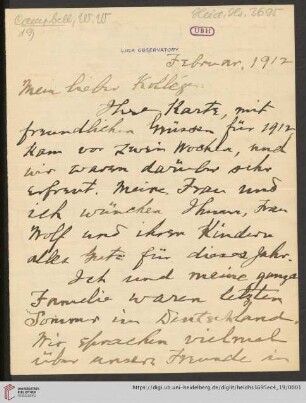 Campbell, W. W.
19)
Heid. Hs. 3695
UBH
LICK OBSERVATORY
Februar, 1912
Mein lieber Kollege.
Ihre Karte, mit
freundlichen Grüssen für 1912
kam vor zwein Wochen, und
wir waren darüber sehr
erfreut. Meine Frau und
ich wünchen Ihnen, Frau
Wolf und ihren Kindern
alles Gute für dieses Jahr.
Ich und meine ganze
Familie waren letzten
Sommer in Deutschland.
Wir sprachen vielmals
über unsere Freunde in
UNIVERSITÄTS-
BIBLIOTHEK
HEIDELBERG
https://digi.ub.uni-heidelberg.de/diglit/heidhs3695ec4_19/0001